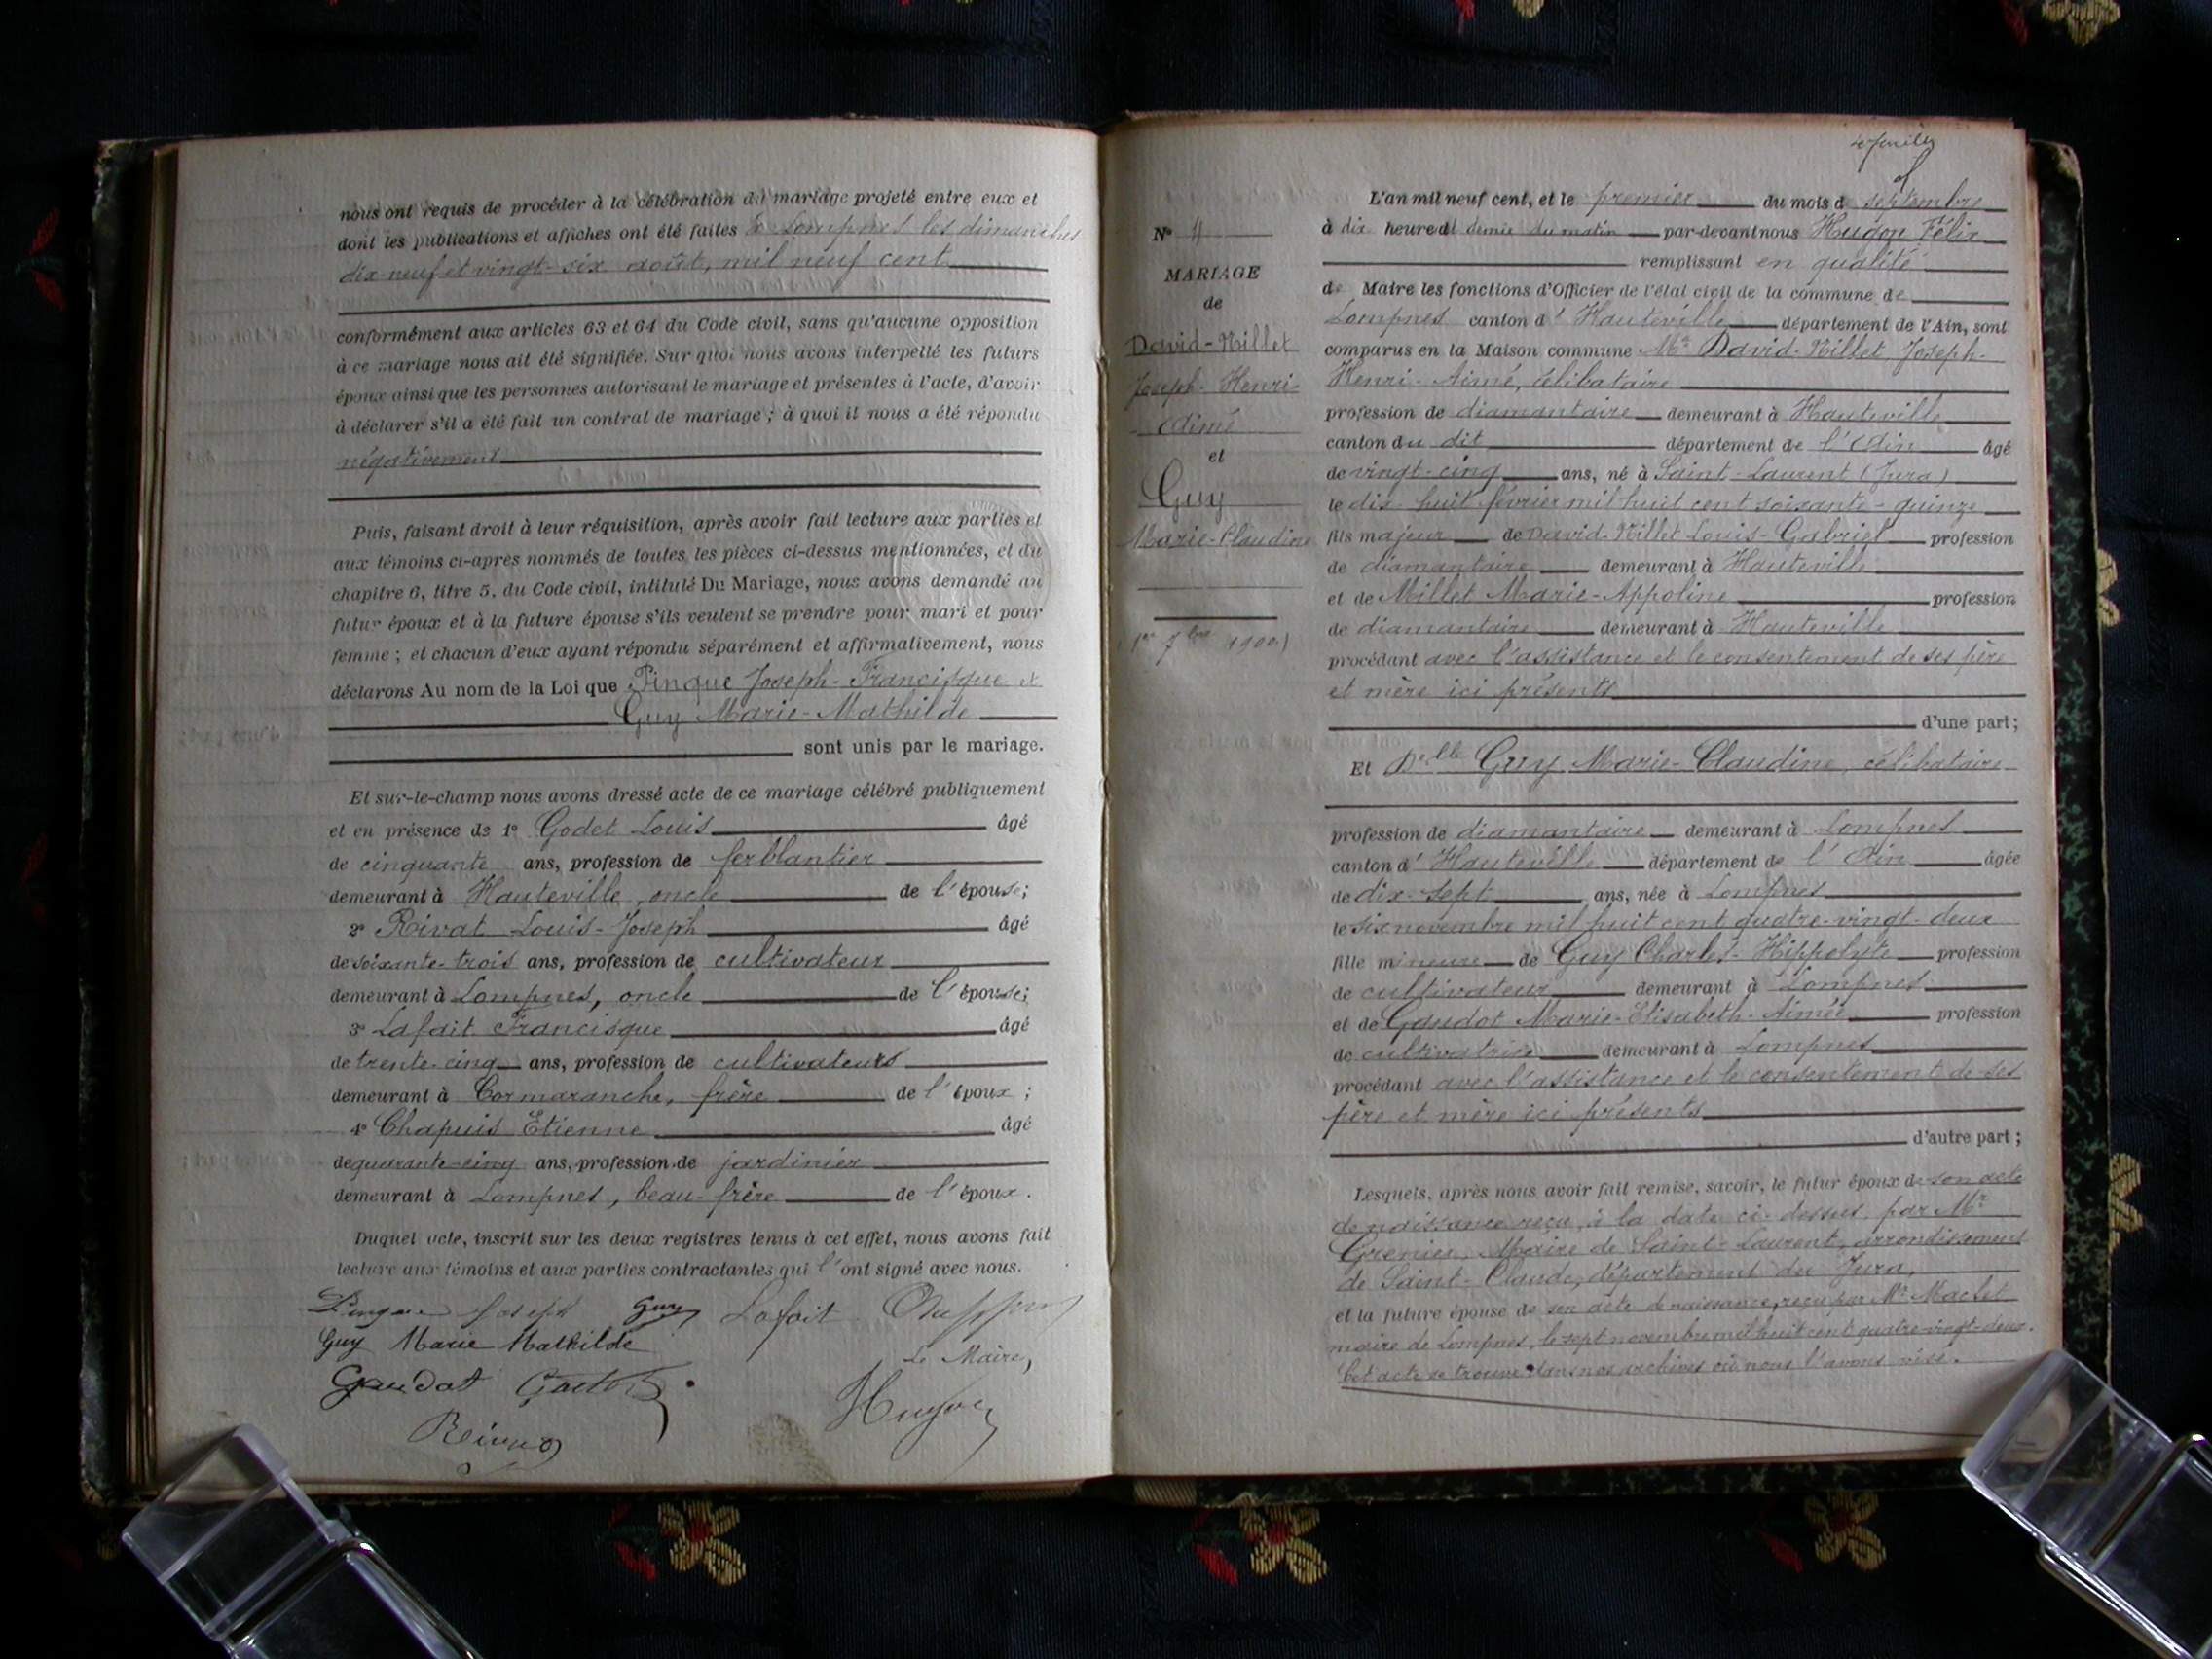 nous ont requis de procéder à la célébration du mariage projeté entre eux et
dont les publications et affiches ont été faites à Lompnes les dimanches
dix neuf et vingt-six août, mil neuf cent
conformément aux articles 63 et 64 du Code civil, sans qu'aucune opposition
à ce mariage nous ait été signifiée. Sur quoi nous avons interpellé les futurs
époux ainsi que les personnes autorisant le mariage et présentes à l'acte, d'avoir
à déclarer s'il a été fait un contrat de mariage ; à quoi il nous a été répondu
négativement
Puis, faisant droit à leur réquisition, après avoir fait lecture aux parties et
aux témoins ci-après nommés de toutes les pièces ci-dessus mentionnées, et du
chapitre 6, titre 5, du Code civil, intitulé Du Mariage, nous avons demandé au
futur époux et à la future épouse s'ils veulent se prendre pour mari et pour
femme ; et chacun d'eux ayant répondu séparément et affirmativement, nous
déclarons Au nom de la Loi que Pinque Joseph-Francisque et
Guy Marie-Mathilde
sont unis par le mariage.
Et sur-le-champ nous avons dressé acte de ce mariage célébré publiquement
et en présence de 1° Godet Louis âgé
de cinquante ans, profession de ferblantier
demeurant à Hauteville, oncle de l'épouse;
2° Rivat Louis-Joseph âgé
de soixante-trois ans, profession de cultivateur
demeurant à Lompnes, oncle de l'épouse;
3° Lafait Francisque âgé
de trente-cinq ans, profession de cultivateurs
demeurant à Cormaranche, frère de l'époux ;
4° Chapuis Etienne âgé
de quarante-cinq ans, profession de jardinier
demeurant à Lompnes, beau-frère de l'époux.
Duquel acte, inscrit sur les deux registres tenus à cet effet, nous avons fait
lecture aux témoins et aux parties contractantes qui l'ont signé avec nous.
Joseph Guy Lafait
Guy Marie Mathilde
Le Maire,
Gaudat
N° 4
MARIAGE
de
David-Nillet
Joseph-Henri-
Aimé
et
Guy
Marie-Claudine
1er 7bre 1900)
L'an mil neuf cent, et le premier du mois d septembre
à dix heures et demie du matin par-devant nous Hugon Félix
remplissant en qualité
de Maire les fonctions d'Officier de l'état civil de la commune de
Lompnes canton d'Hauteville département de l'Ain, sont
comparus en la Maison commune Mr David-Nillet Joseph-
Henri-Aimé, célibataire
profession de diamantaire demeurant à Hauteville
canton du dit département de l'Ain âgé
de vingt-cinq ans, né à Saint-Laurent (Jura)
le dix-huit février mil huit cent soixante-quinze
fils majeur de David-Nillet Louis-Gabriel profession
de diamantaire demeurant à Hauteville
et de Millet Marie-Appoline profession
de diamantaire demeurant à Hauteville
procédant avec l'assistance et le consentement de ses père
et mère ici présents
d'une part;
Et Delle Guy Marie-Claudine, célibataire
profession de diamantaire demeurant à Lompnes
canton d'Hauteville département de l'Ain âgée
de dix-sept ans, née à Lompnes
le six novembre mil huit cent quatre-vingt-deux
fille mineure de Guy Charles-Hippolyte profession
de cultivateur demeurant à Lompnes
et de Gaudot Marie-Elisabeth-Aimée profession
de cultivatrice demeurant à Lompnes
procédant avec l'assistance et le consentement de ses
père et mère ici présents
d'autre part ;
Lesquels, après nous avoir fait remise, savoir, le futur époux de son acte
de naissance reçu, à la date ci-dessus, par Mr
Grenier, Maire de Saint-Laurent, arrondissement
de Saint-Claude, département du Jura,
et la future épouse de son acte de naissance, reçu par Mr Maclet
maire de Lompnes, le sept novembre mil huit cent quatre-vingt-deux.
Cet acte se trouve dans nos archives où nous l'avons visé.